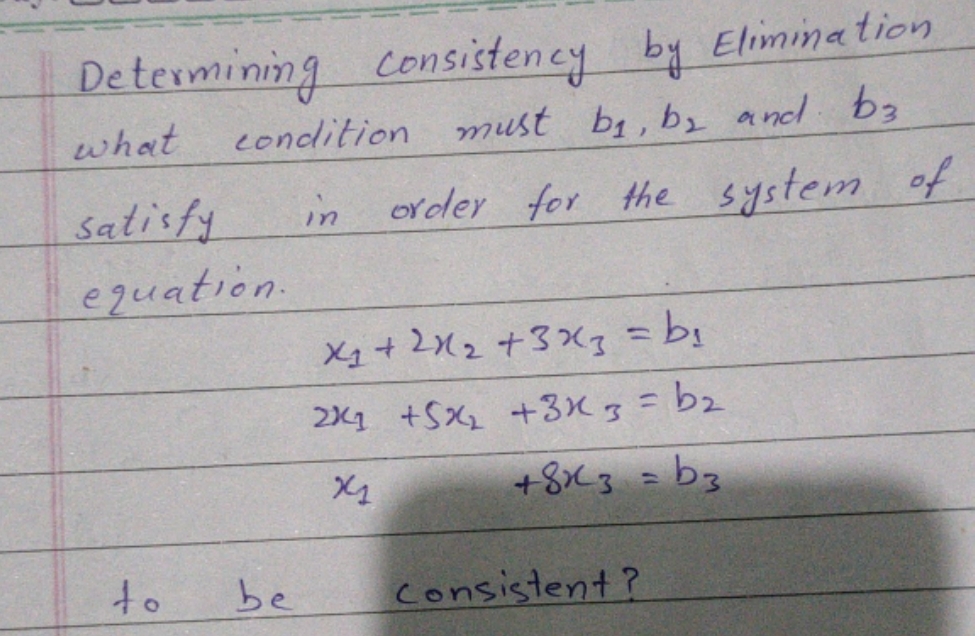 Determining consistency by Elimination
what condition must b₁, b₂ and b₃
satisfy in order for the system of
equation.
x₁ + 2x₂ + 3x₃ = b₁
2x₁ + 5x₂ + 3x₃ = b₂
x₁ + 8x₃ = b₃
to be consistent?